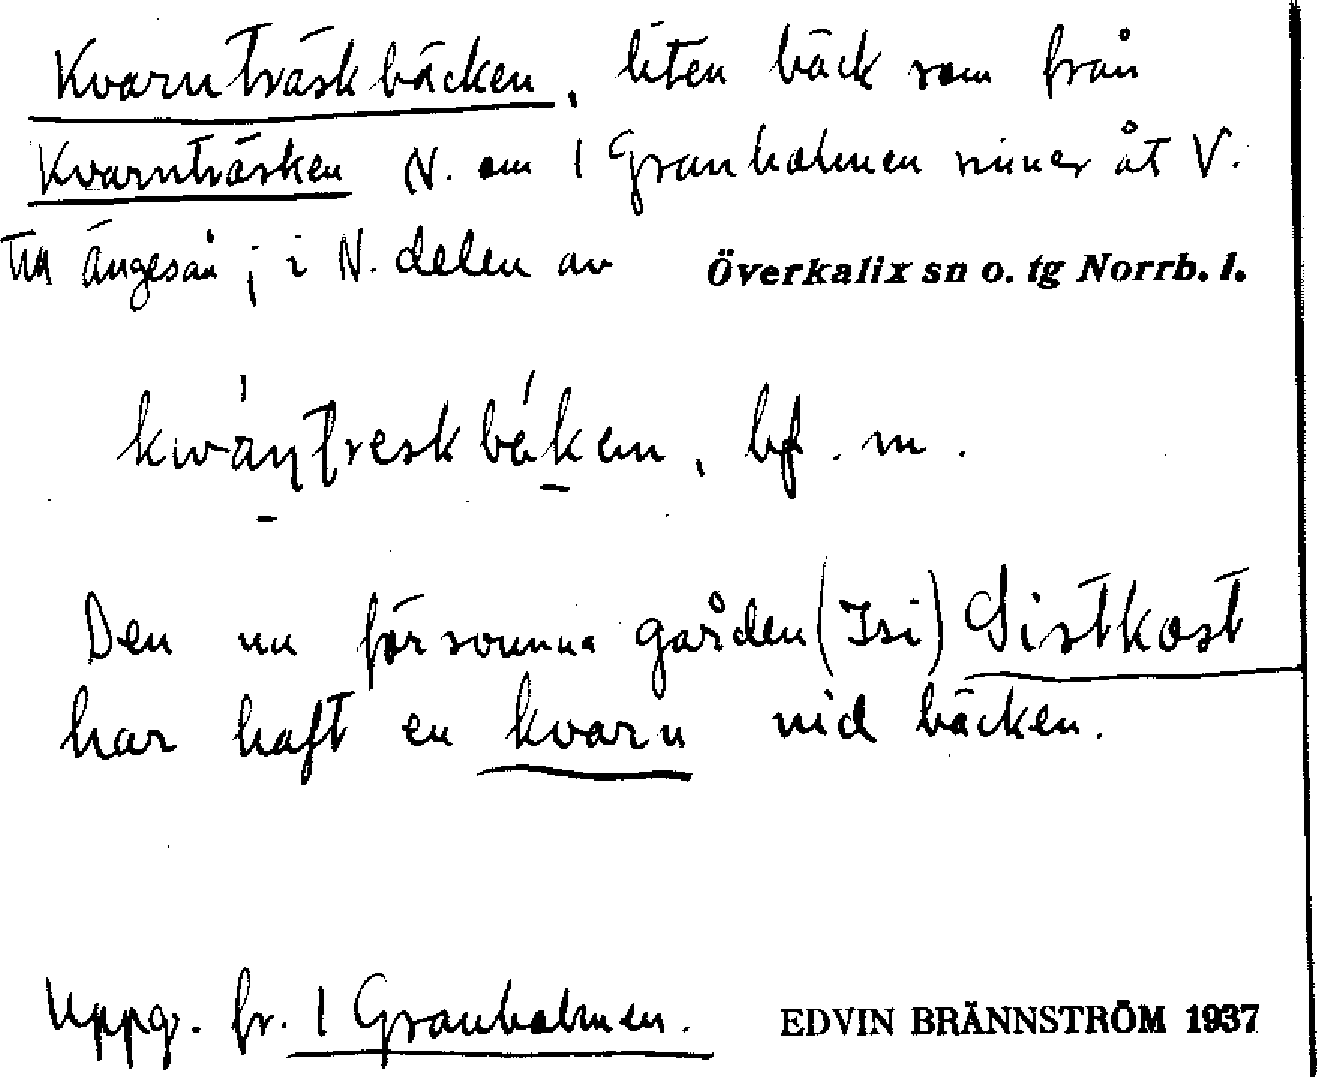 Kvarnträskbäcken, liten bäck som från
Kvarnträsken N. om 1 Granholmen rinner åt V.
till Ängesån; i N. delen av Överkalix sn o. tg Norrb. l.
bf. m.
Den nu försvunna gården (Isi) Sistkost
har haft en kvarn vid bäcken.
Uppg. fr. 1 Granholmen. EDVIN BRÄNNSTRÖM 1937